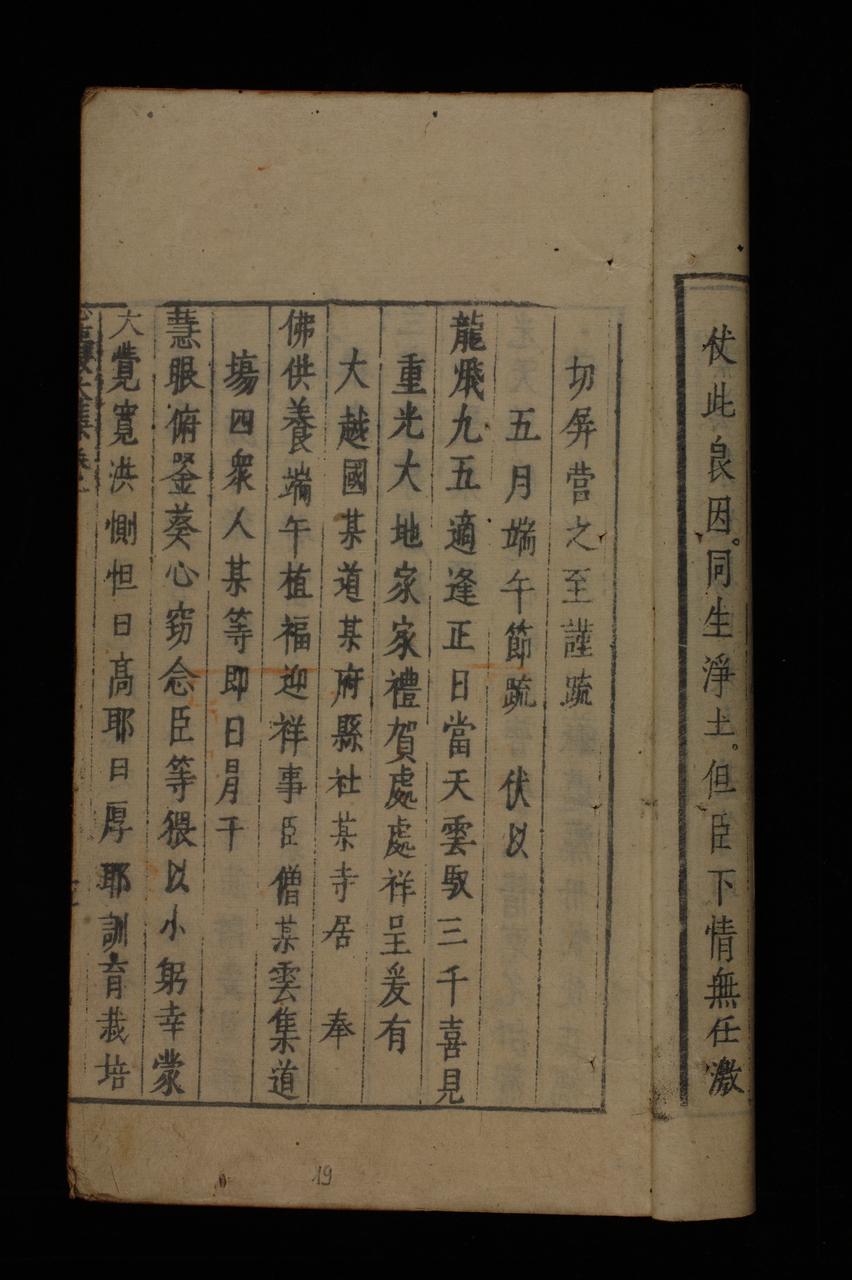 仗此良因。同生淨土。但臣下情無任激
切屏营之至謹疏
五月端午節疏 伏以
龍飛九五適逢正日當天雲馭三千喜見
重光大地家家禮賀處處祥呈爰有
大越國某道某府縣社某寺居 奉
佛供養端午植福迎祥事臣僧某雲集道
塲四衆人某等即日冐干
慧眼俯鉴葵心窃念臣等猥以小躬幸蒙
大覺寬洪惻怛日高耶日厚耶訓育栽培
19